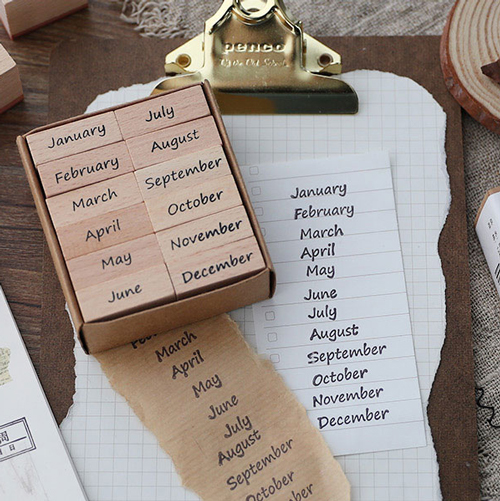 penco
January
February
March
April
May
June
July
August
September
October
November
December
January
February
March
April
May
June
July
August
September
October
November
December
March
April
May
June
July
August
September
October